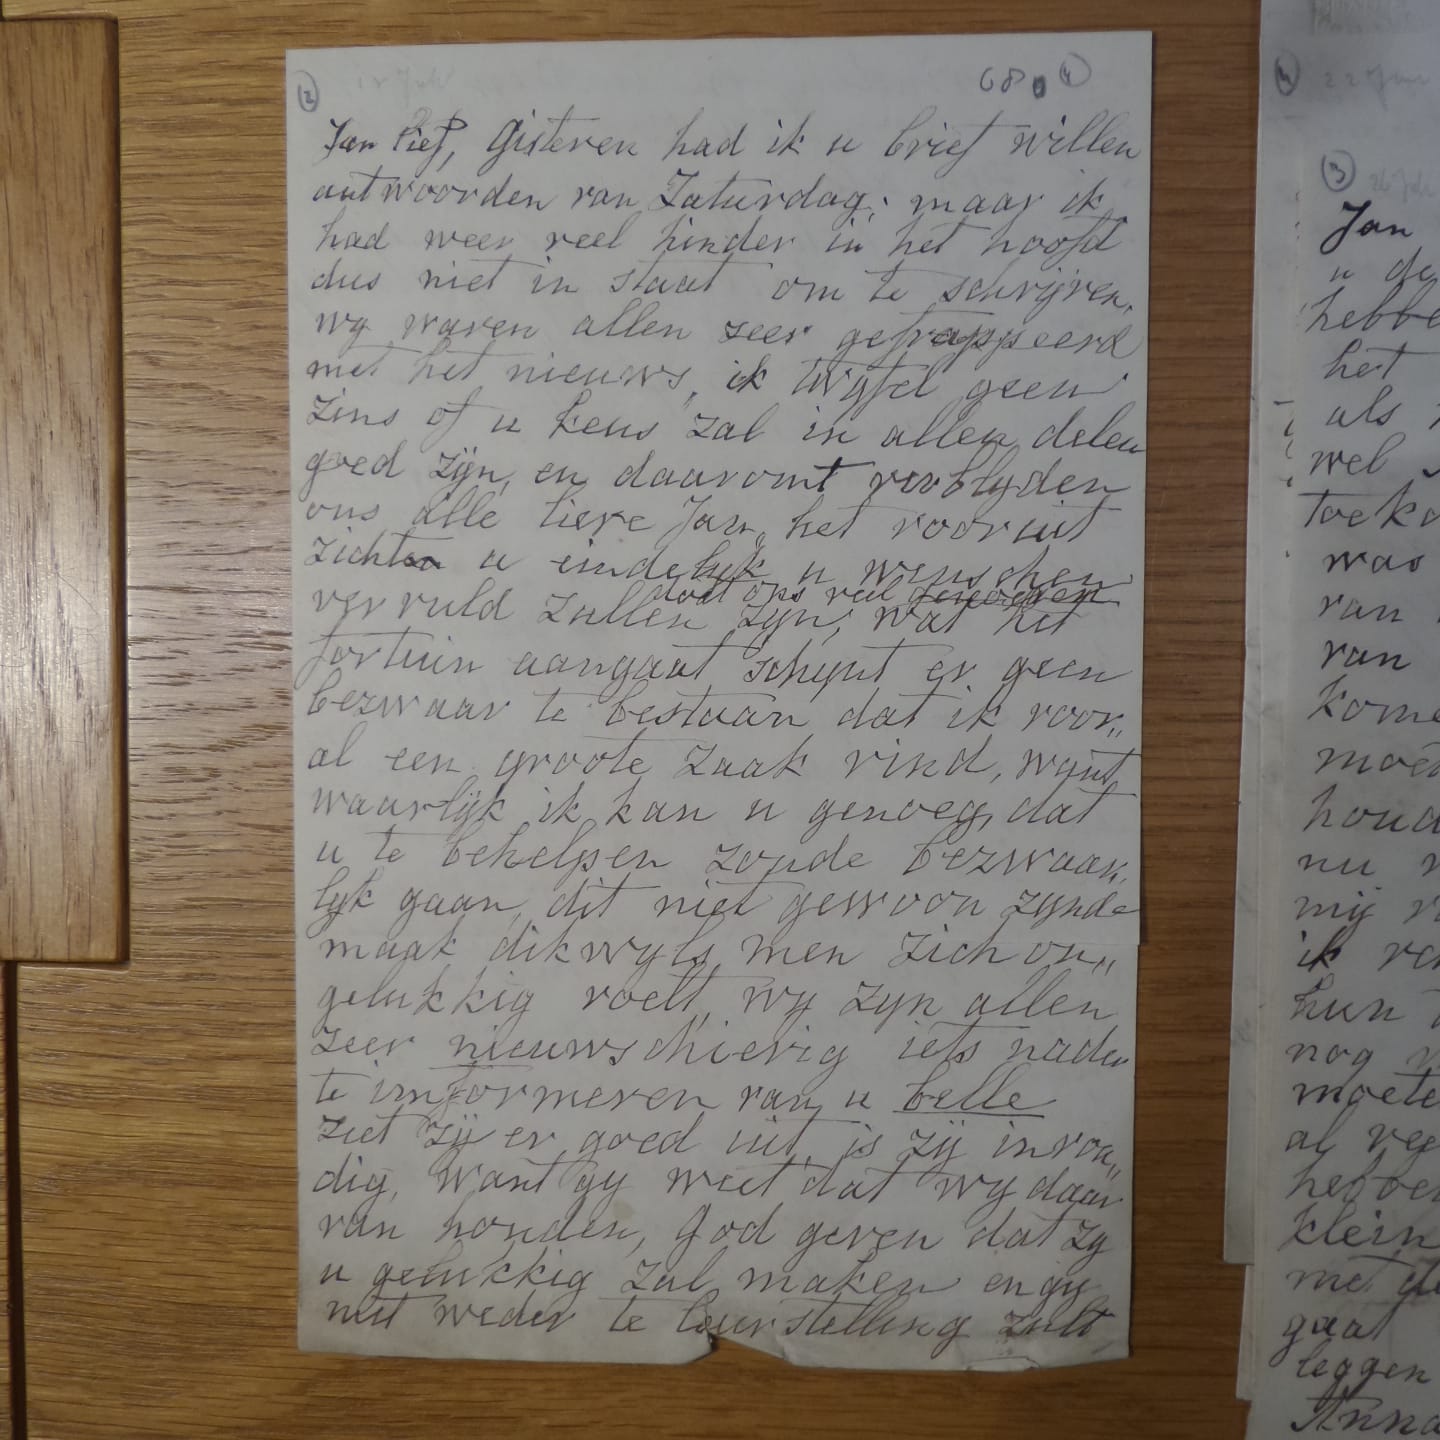 2
18 Juli
68
4
Jan lief, Gisteren had ik u brief willen
antwoorden van Zaturdag; maar ik
had weer veel hinder in het hoofd
dus niet in staat om te schrijven,
wy waren allen zeer gefrappeerd
met het nieuws, ik twyfel geen
zins of u keus zal in allen delen
goed zijn, en daarom verblyden
ons alle lieve Jan, het vooruit
zicht u eindelyk u wenschen
doet ons veel genoegen
vervuld zullen zijn, wat het
fortuin aangaat schynt er geen
bezwaar te bestaan dat ik voor„
al een groote zaak vind, want
waarlijk ik kan u genoeg, dat
u te behelpen zoude bezwaar„
lyk gaan, dit niet gewoon zynde
maak dikwyls men zich on„
gelukkig voelt, wy zyn allen
zeer nieuwschierig iets nader
te imformeren van u belle
ziet zij er goed uit, is zij invou„
dig, want gy weet dat wy daar
van houden, God geven dat zy
u gelukkig zal maken en gy
niet weder te leurstelling zult
4
22 Juni
3
26 Juli
Jan
u de
hebbe
het
als
wel
toeko
was
van
van
kome
moe
houd
nu
mij
ik
hun
nog
moete
al
hebben
klein
met
gaat
leggen
Anna